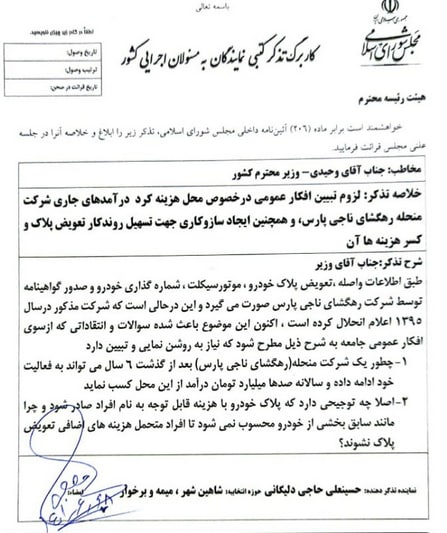 باسمه تعالی
جمهوری اسلامی ایران
مجلس شورای اسلامی
کاربرگ تذکر کتبی نمایندگان به مسئولان اجرایی کشور
لطفاً در این کادر چیزی ننویسید.
تاریخ وصول:
ترتیب وصول:
تاریخ قرائت در صحن:
هیئت رئیسه محترم
خواهشمند است برابر ماده (۲۰۶) آئین‌نامه داخلی مجلس شورای اسلامی، تذکر زیر را ابلاغ و خلاصه آنرا در جلسه
علنی مجلس قرائت فرمایید.
مخاطب: جناب آقای وحیدی- وزیر محترم کشور
خلاصه تذکر: لزوم تبیین افکار عمومی درخصوص محل هزینه کرد درآمدهای جاری شرکت
منحله رهگشای ناجی پارس، و همچنین ایجاد سازوکاری جهت تسهیل روندکار تعویض پلاک و
کسر هزینه ها آن
شرح تذکر:جناب آقای وزیر
طبق اطلاعات واصله ،تعویض پلاک خودرو ، موتورسیکلت ، شماره گذاری خودرو و صدور گواهینامه
توسط شرکت رهگشای ناجی پارس صورت می گیرد و این درحالی است که شرکت مذکور درسال
۱۳۹۵ اعلام انحلال کرده است ، اکنون این موضوع باعث شده سوالات و انتقاداتی که ازسوی
افکار عمومی جامعه به شرح ذیل مطرح شود که نیاز به روشن نمایی و تبیین دارد
۱-چطور یک شرکت منحله(رهگشای ناجی پارس) بعد از گذشت ۶ سال می تواند به فعالیت
خود ادامه داده و سالانه صدها میلیارد تومان درآمد از این محل کسب نماید
۲-اصلا چه توجیحی دارد که پلاک خودرو با هزینه قابل توجه به نام افراد صادر شود و چرا
مانند سابق بخشی از خودرو محسوب نمی شود تا افراد متحمل هزینه های اضافی تعویض
پلاک نشوند؟
نماینده تذکر دهنده: حسینعلی حاجی دلیگانی حوزه انتخابیه: شاهین شهر ، میمه و برخوار
امضاء: